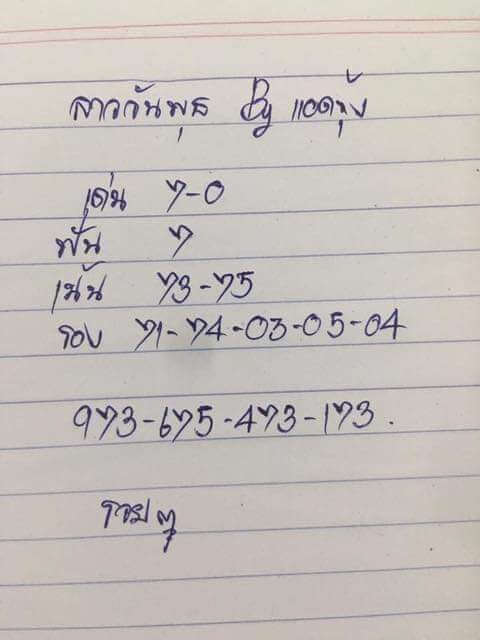 ลาววันพุธ By แอดกุ้ง
เด่น 7-0
ฟัน 7
เน้น 73-75
รอง 71-74-03-05-04
973-675-473-173.
รวยๆ